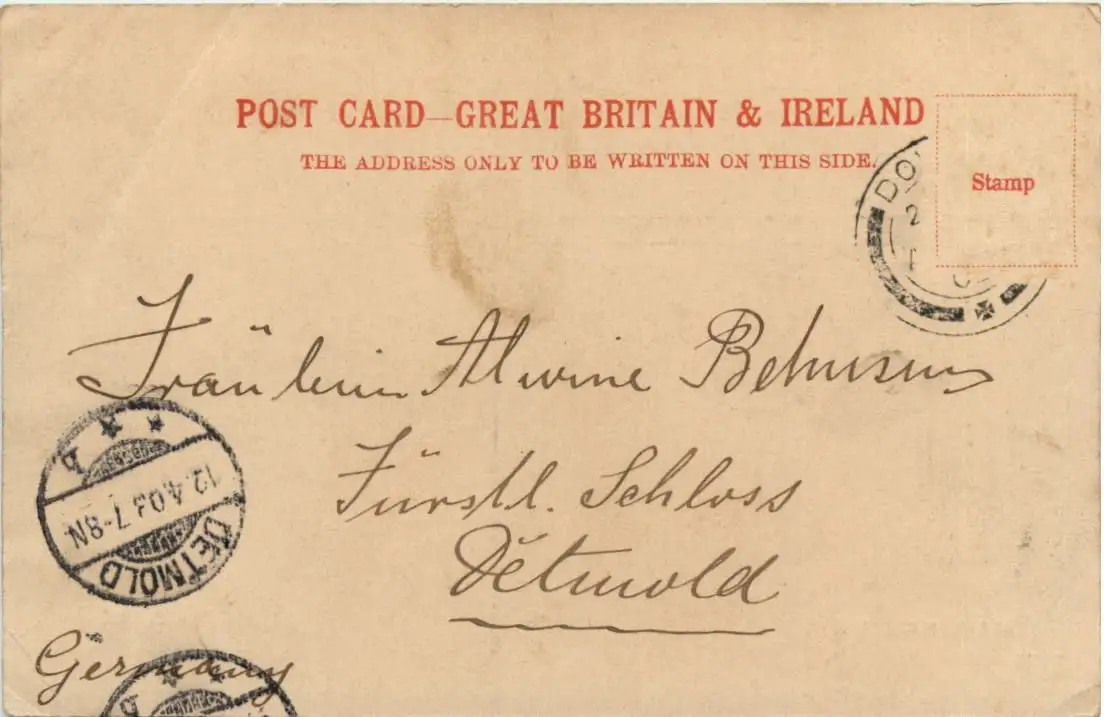 POST CARD—GREAT BRITAIN & IRELAND
THE ADDRESS ONLY TO BE WRITTEN ON THIS SIDE.
Stamp
DO
2
Fräulein Alwine
Fürstl. Schloss
Detmold
Germany
DETMOLD
12.4.03.7-8N.
b
b